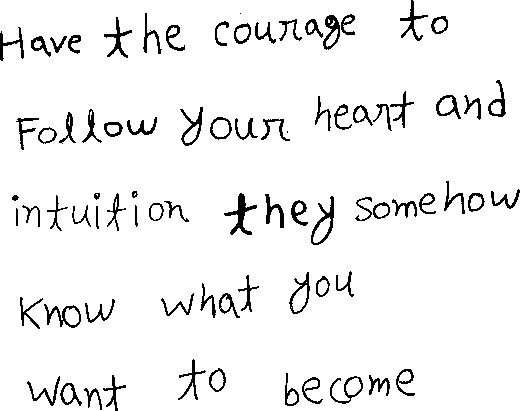 Have the courage to
Follow your heart and
intuition they somehow
know what you
want to become